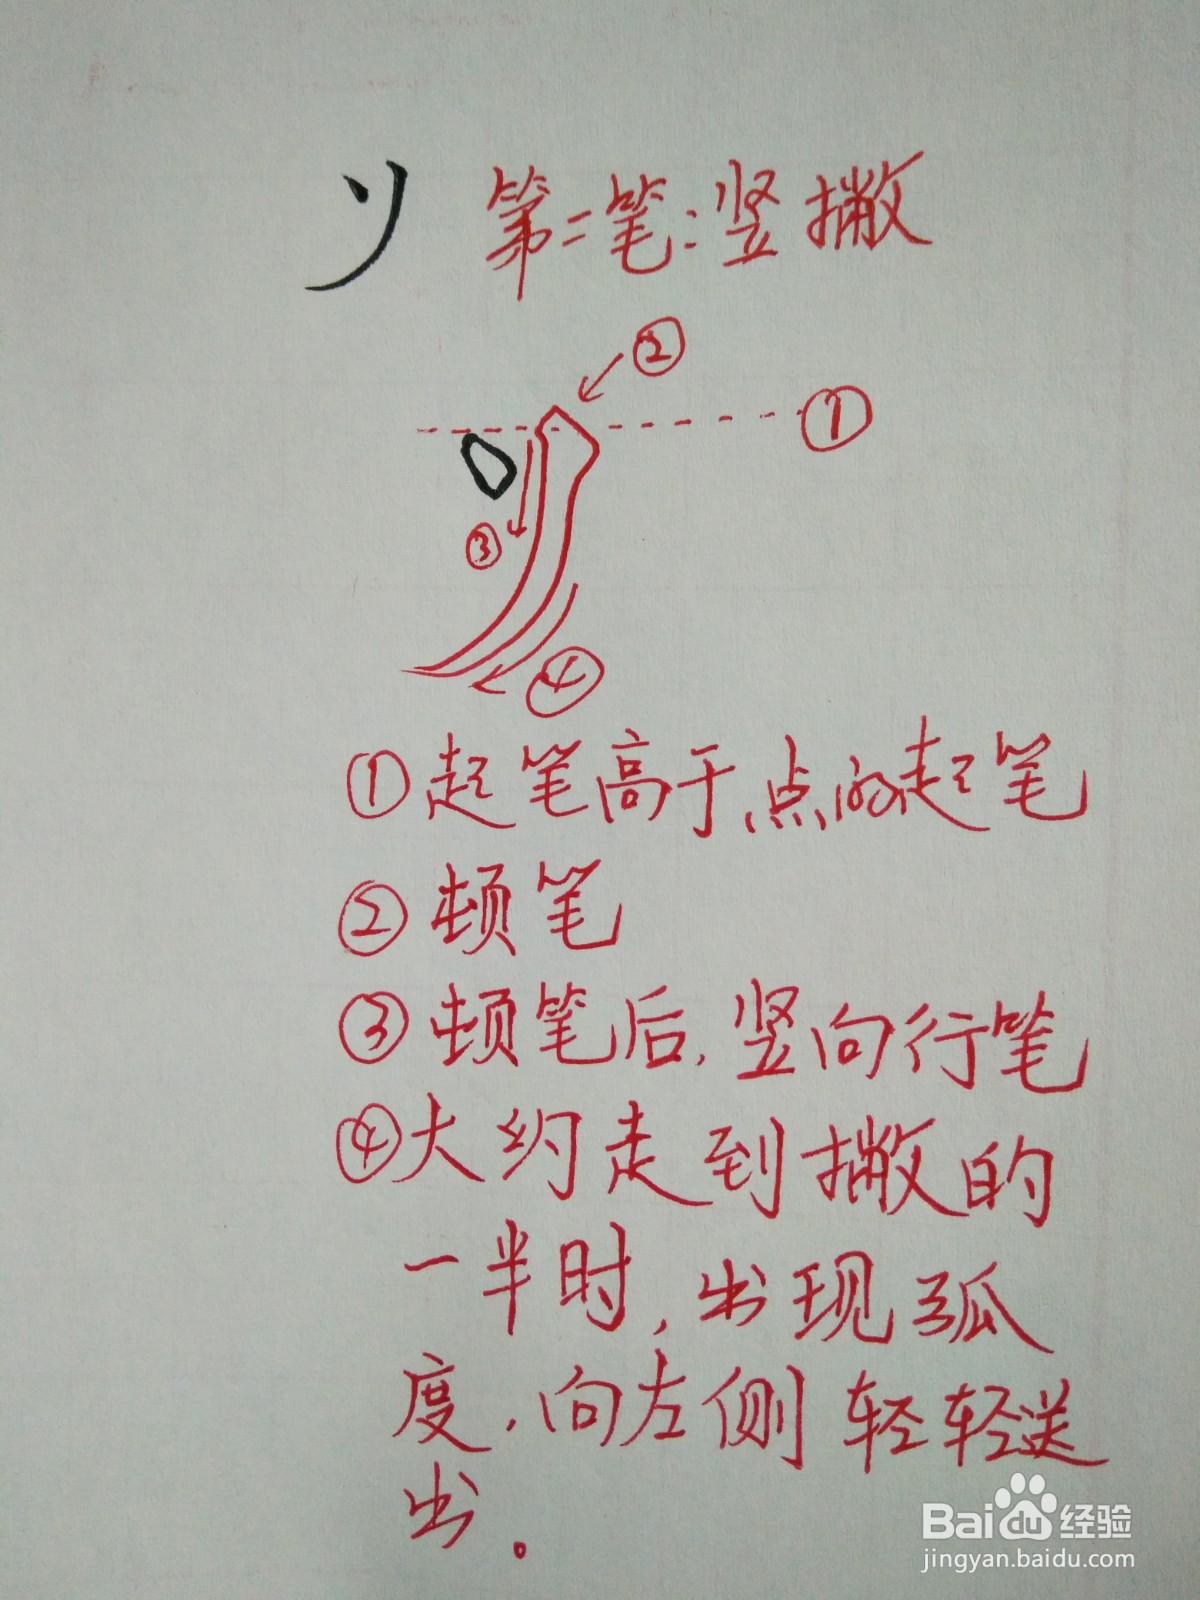 第二笔:竖撇
②
①
③
④
①起笔高于点的起笔
②顿笔
③顿笔后,竖向行笔
④大约走到撇的
一半时,出现弧
度,向左侧轻轻送
出。
Baidu经验
jingyan.baidu.com